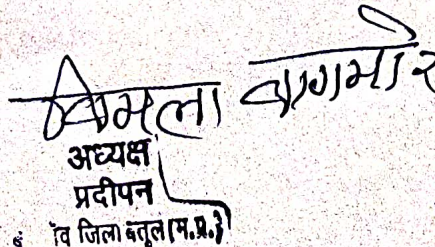 विमला वागमारे
अध्यक्ष
प्रदीपन
व जिला बैतूल (म.प्र.)